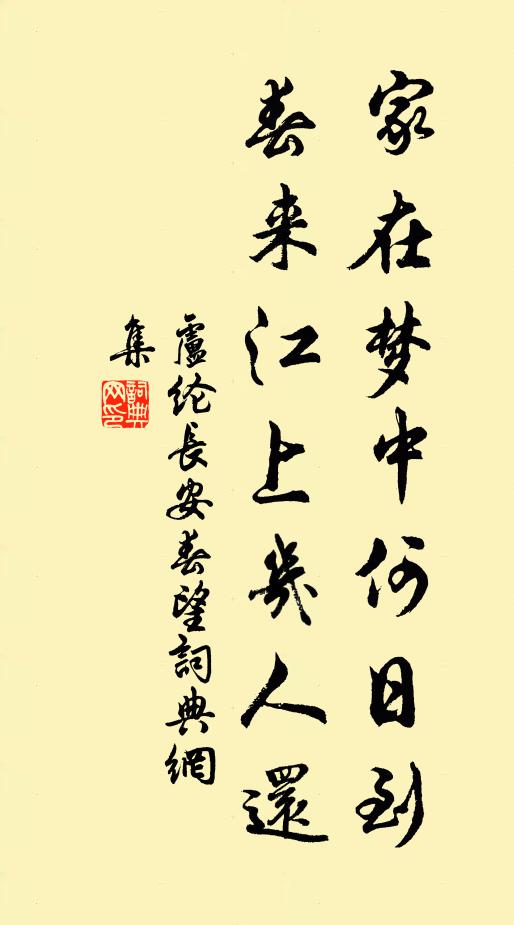 家在梦中何日到
春来江上几人還
盧纶長安春望詞典網
集
詞典网印